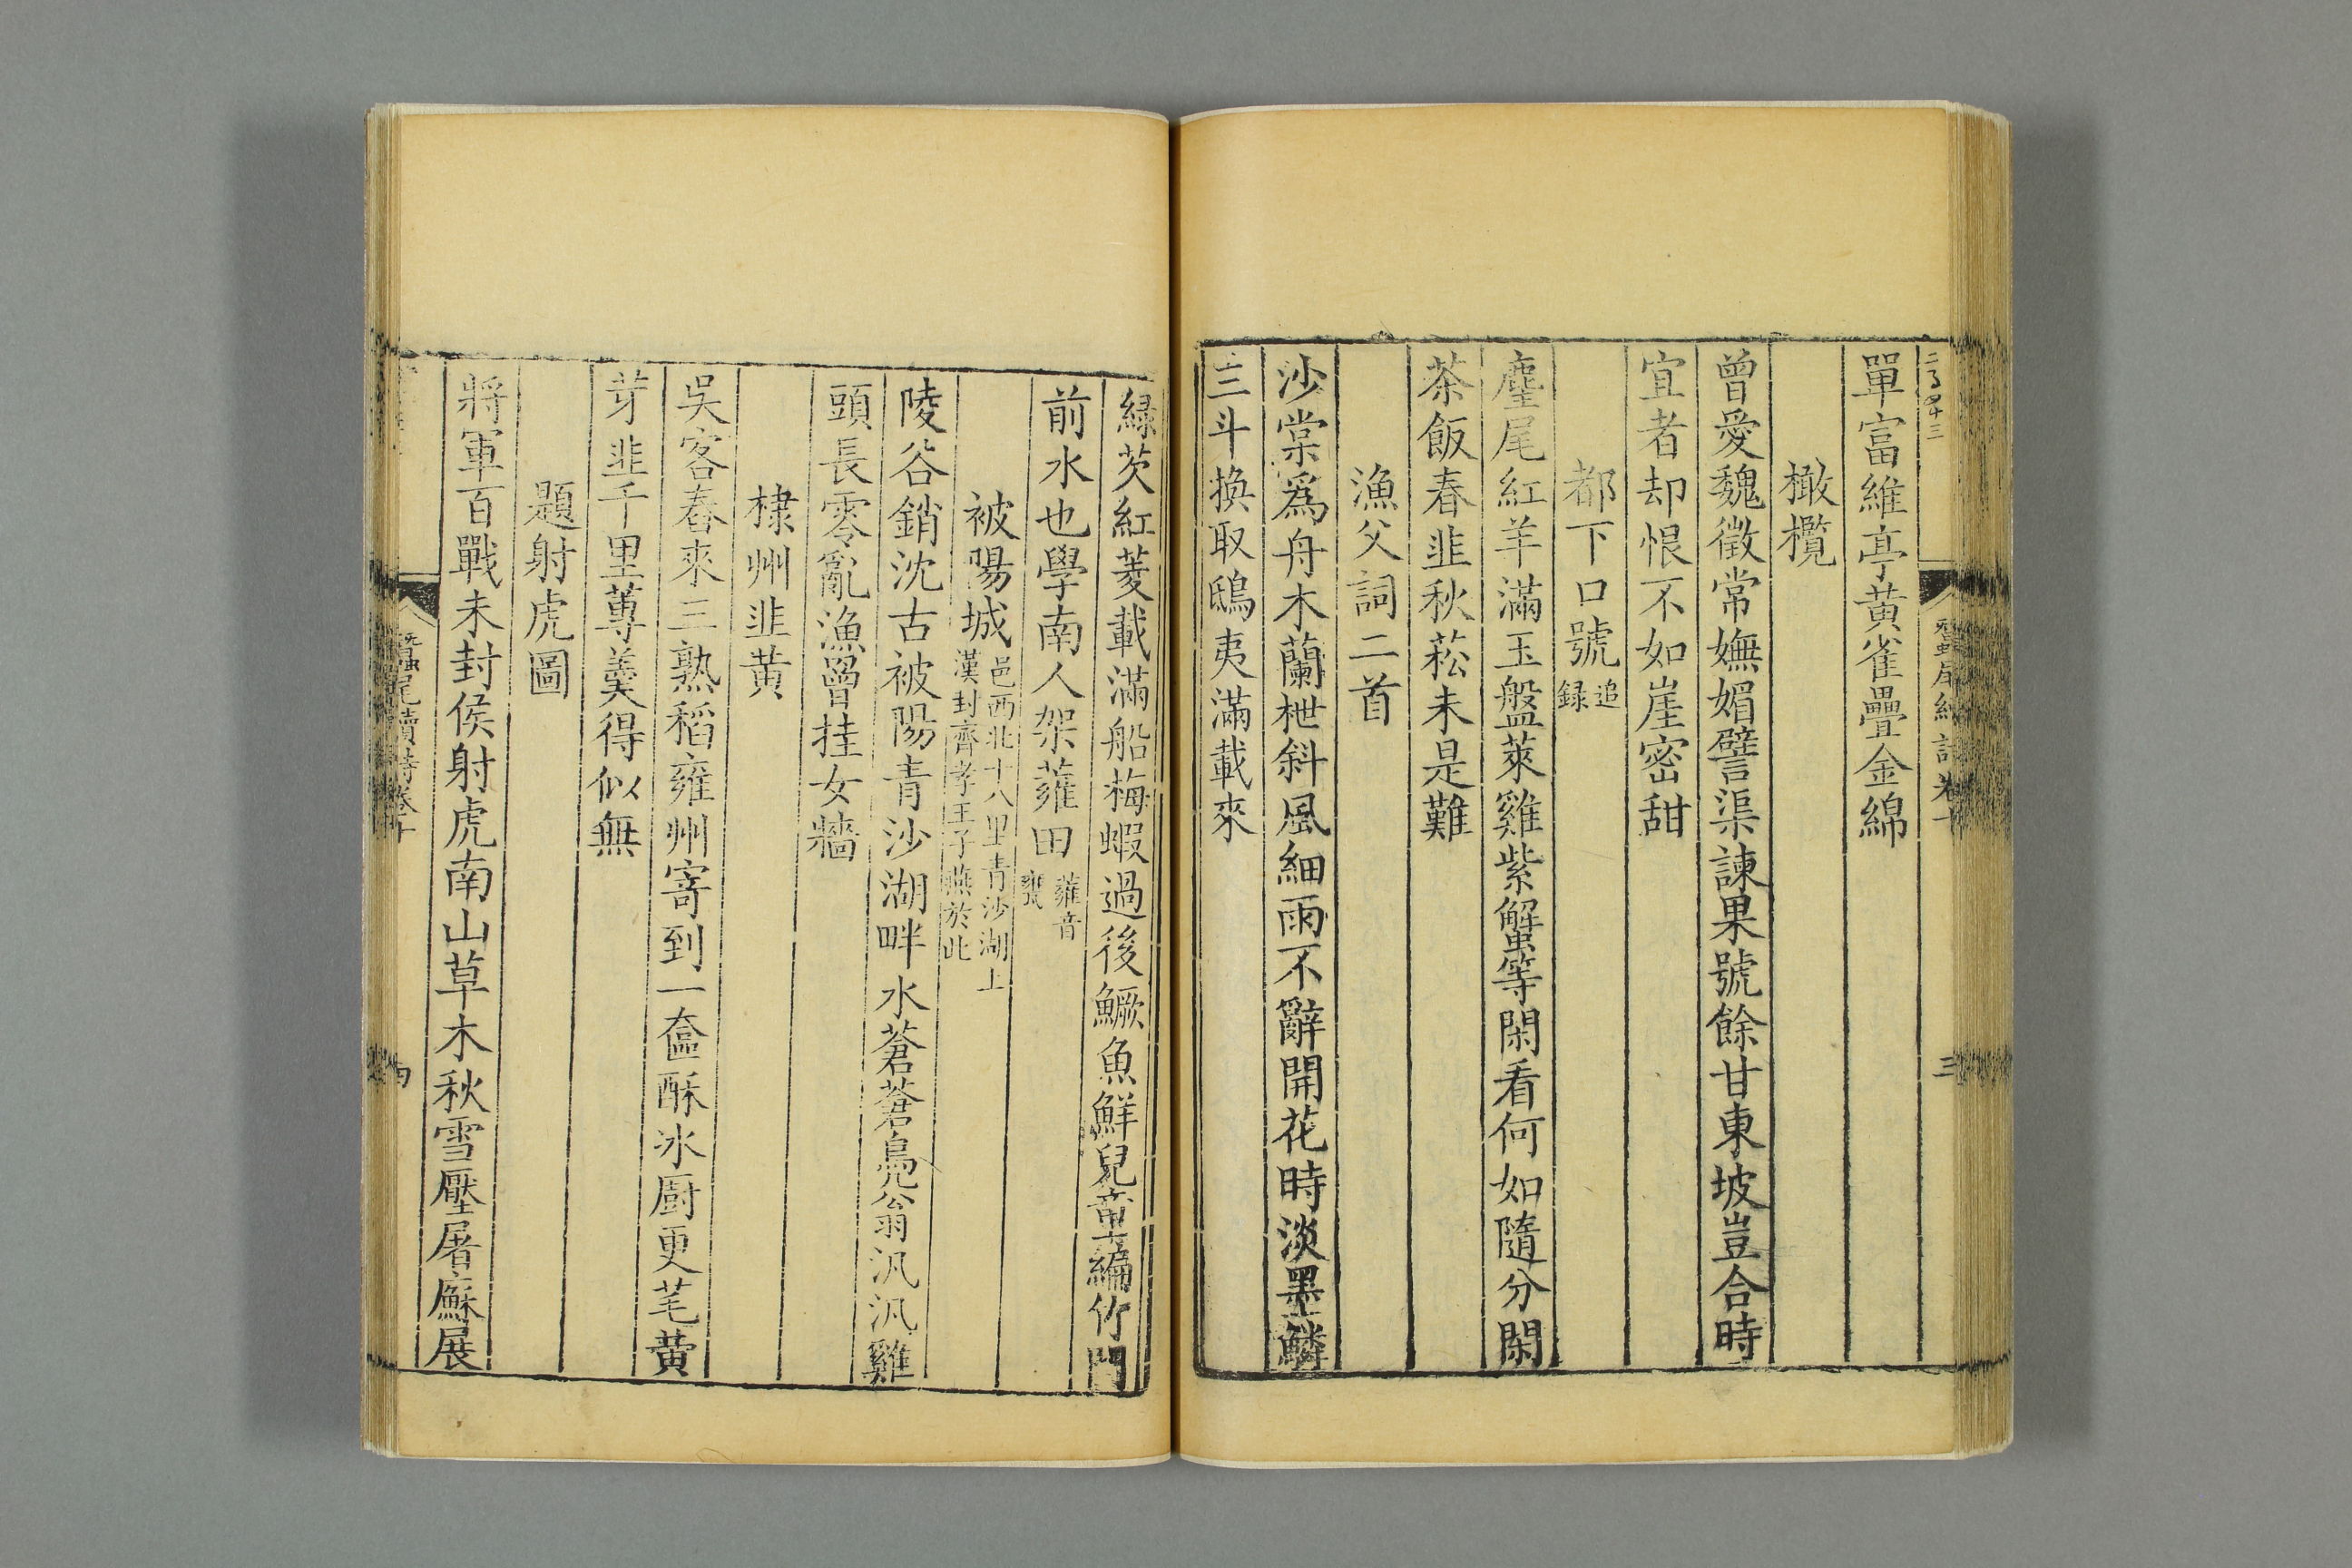 單富維亭黃雀疊金綿
橄欖
曾愛魏徵常嫵媚譬渠諫果號餘甘東坡豈合時
宜者却恨不如崖密甜
都下口號追録
麈尾紅羊滿玉盤萊雞紫蟹等閑看何如隨分閑
茶飯春韭秋菘未是難
漁父詞二首
沙棠爲舟木蘭枻斜風細雨不辭開花時淡墨鱗
三斗換取鴟夷滿載來
三
綠芡紅菱載滿船梅蝦過後鱖魚鮮兒童編竹門
前水也學南人架蕹田蕹音甕
被陽城邑西北十八里青沙湖上漢封齊孝王子燕於此
陵谷銷沈古被陽青沙湖畔水蒼蒼鳧翁汎汎雞
頭長零亂漁罾挂女牆
棣州韭黃
吳客舂來三熟稻雍州寄到一奩酥冰廚更芼黃
芽韭千里蓴羹得似無
題射虎圖
將軍百戰未封侯射虎南山草木秋雪壓屠廯展
蠶尾續詩卷十